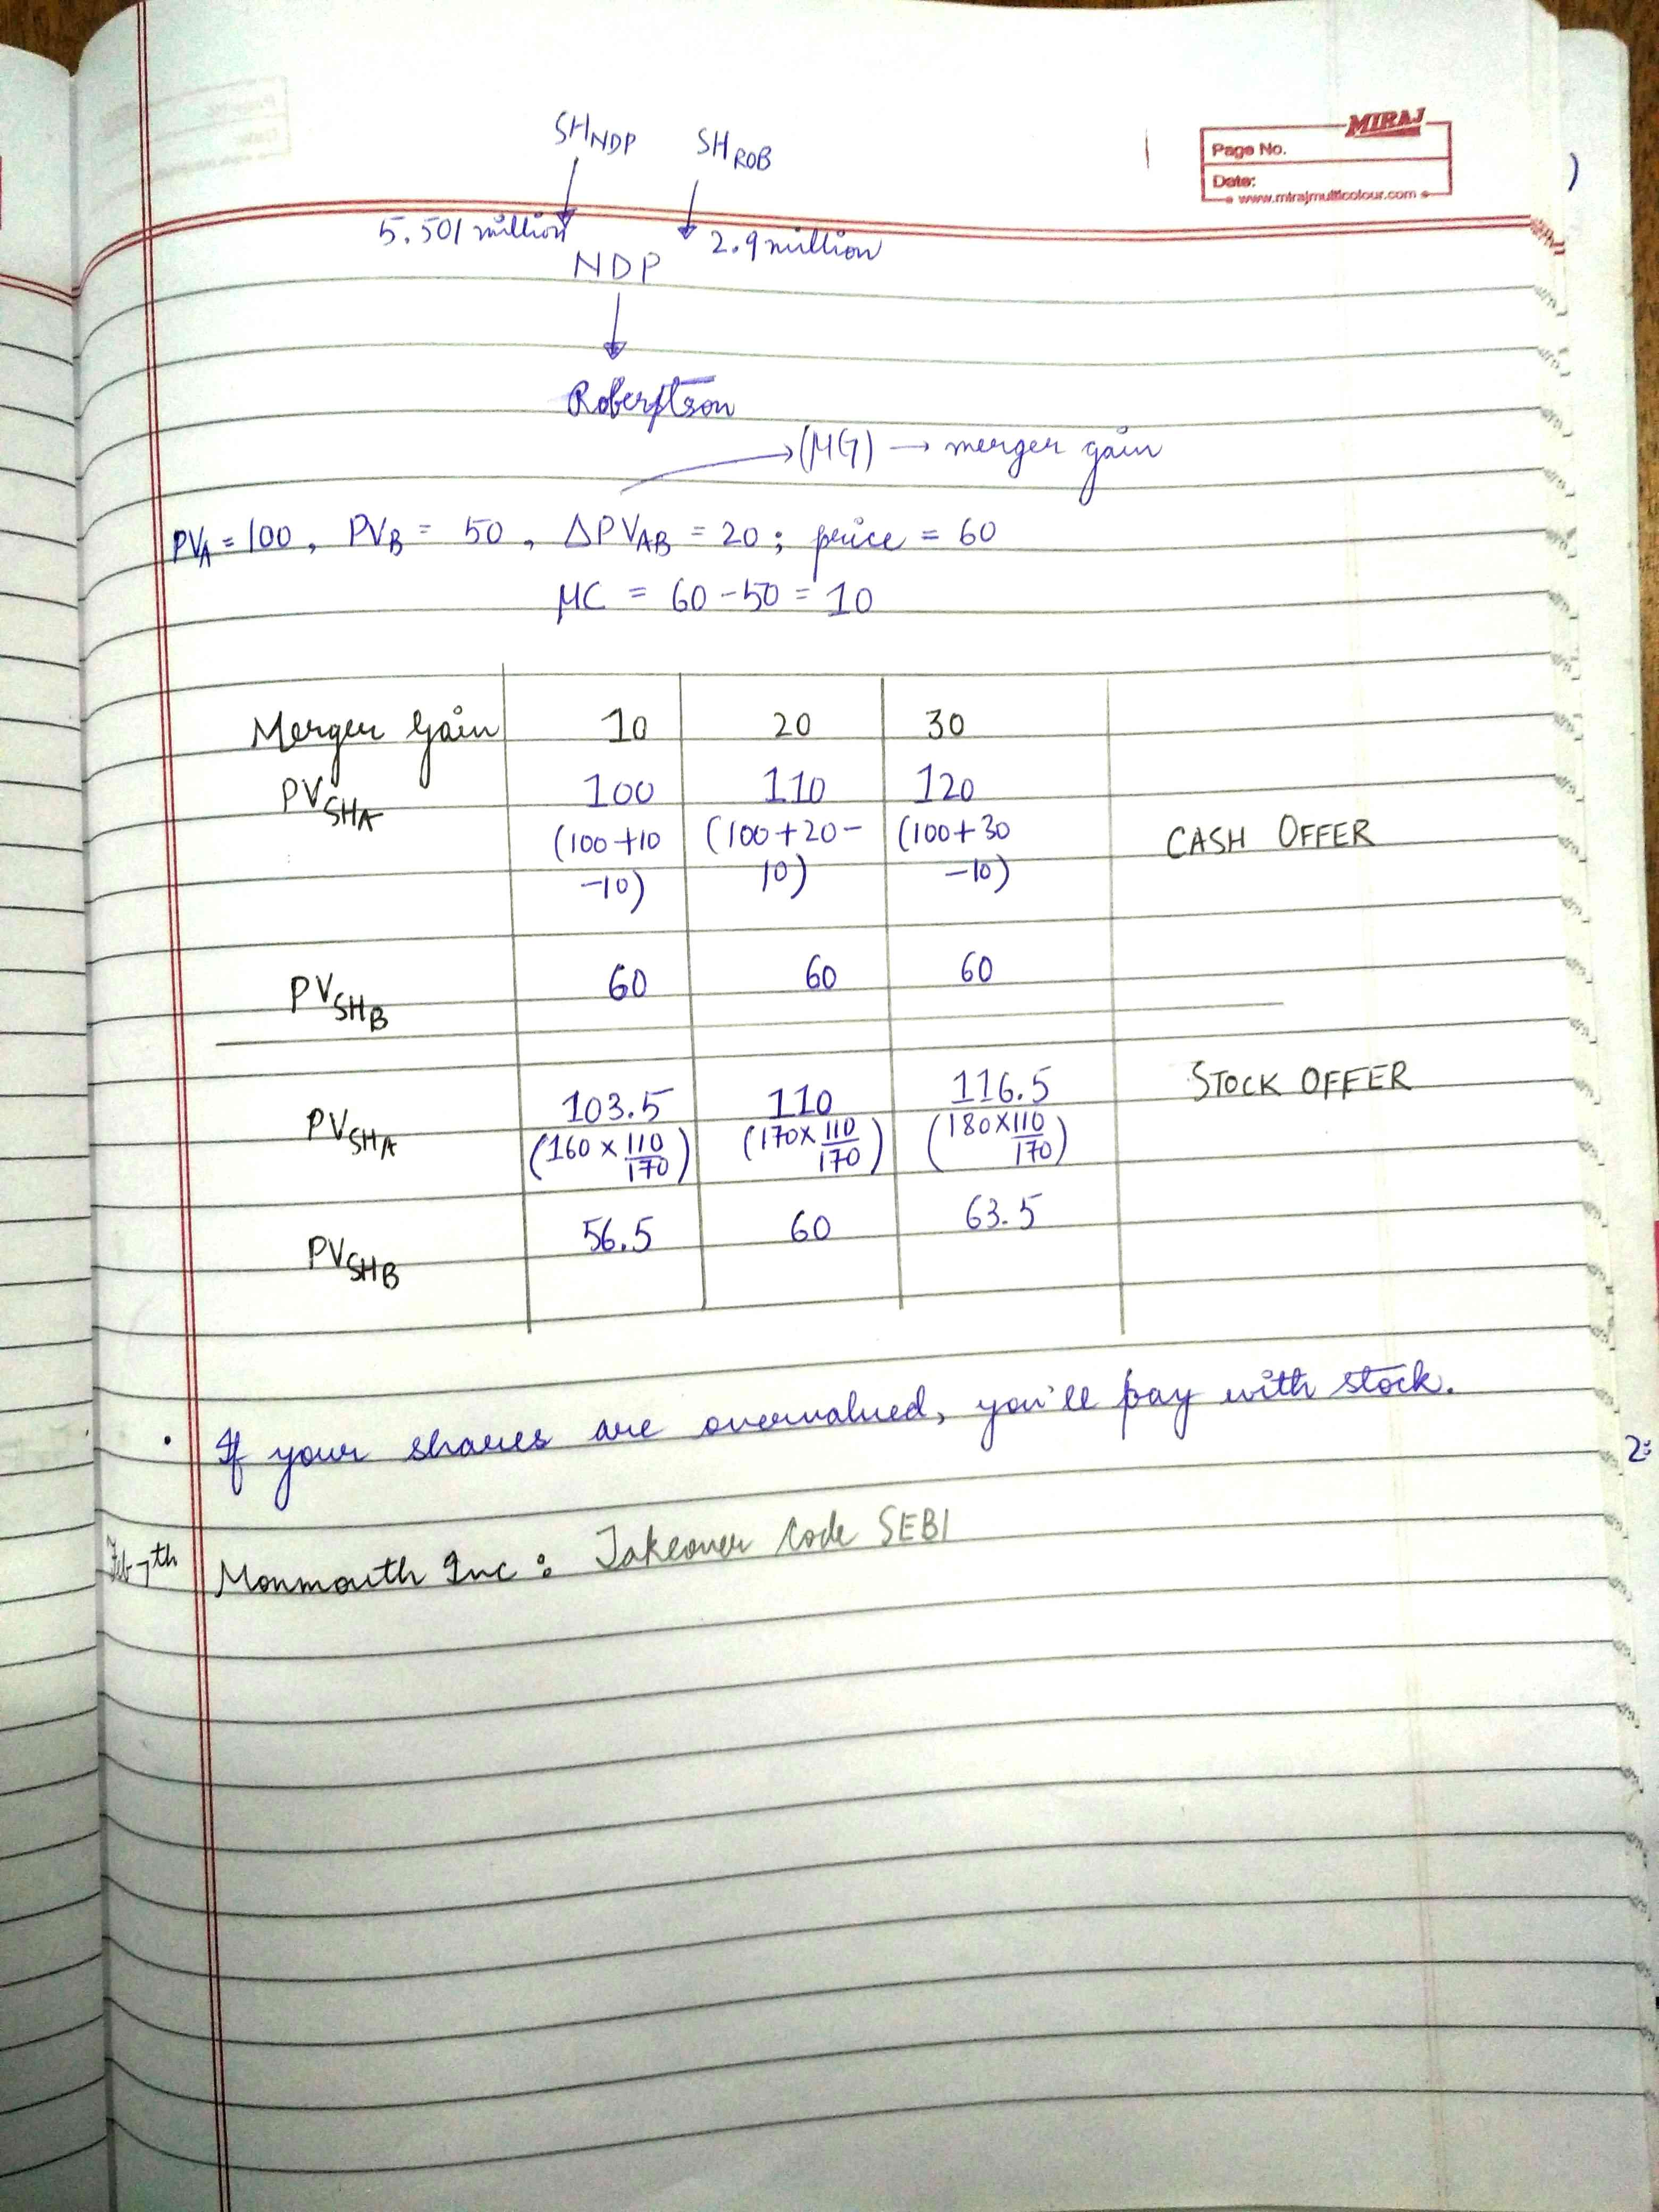 SH_NDP SH_ROB
MIRAJ
Page No.
Date:
www.mirajmulticolour.com
)
5.501 million 2.9 million
NDP
↓
Robertson
→ (MG) → merger gain
PV_A = 100, PV_B = 50, ΔPV_AB = 20; price = 60
MC = 60 - 50 = 10
Merger Gain 10 20 30
PV_SHA 100 110 120
(100+10 (100+20- (100+30 CASH OFFER
-10) 10) -10)
PV_SHB 60 60 60
PV_SHA 103.5 110 116.5 STOCK OFFER
(160 × 110/170) (170 × 110/170) (180 × 110/170)
PV_SHB 56.5 60 63.5
• If your shares are overvalued, you'll pay with stock.
2:
Feb 7th Monmouth Inc : Takeover Code SEBI